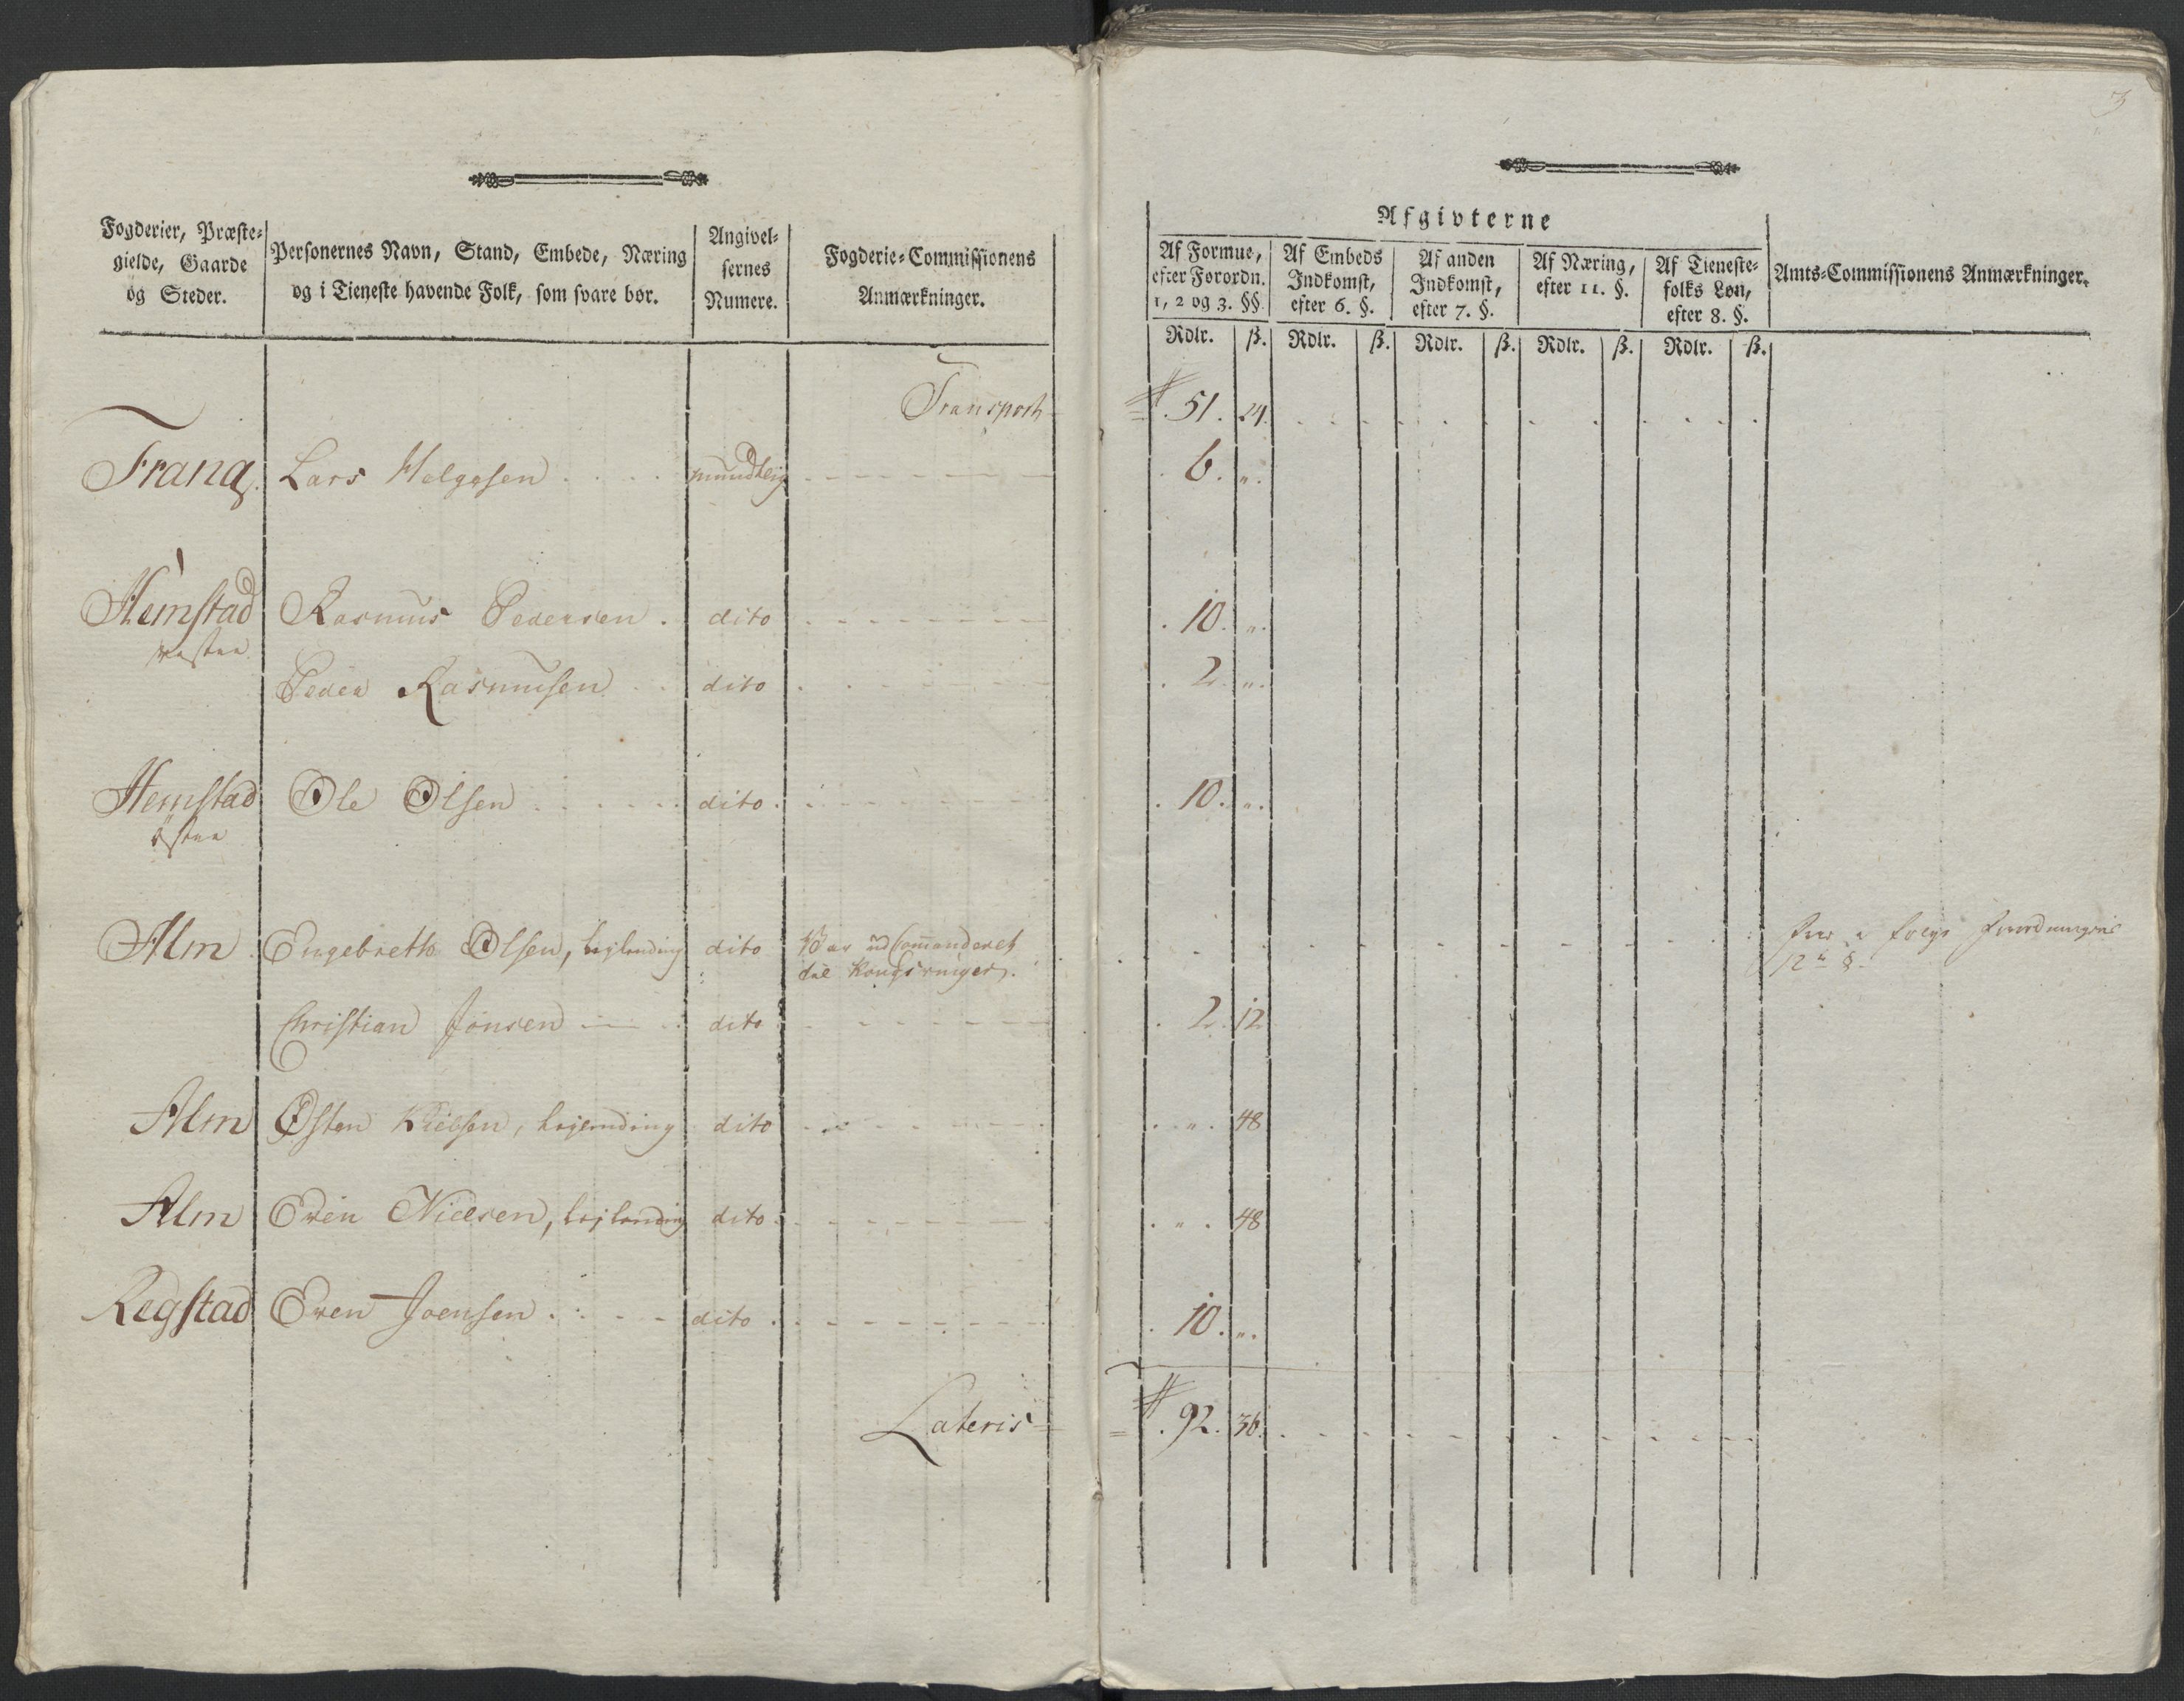 3
Fogderier, Præste-
gielde, Gaarde
og Steder.
Personernes Navn, Stand, Embede, Næring
og i Tieneste havende Folk, som svare bør.
Angivel-
sernes
Numere.
Fogderie-Commissionens
Anmærkninger.
Afgivterne
Af Formue,
efter Forordn.
1, 2 og 3. §§.
Af Embeds
Indkomst,
efter 6. §.
Af anden
Indkomst,
efter 7. §.
Af Næring,
efter 11. §.
Af Tieneste-
folks Løn,
efter 8. §.
Amts-Commissionens Anmærkninger.
Rdlr. ß. Rdlr. ß. Rdlr. ß. Rdlr. ß. Rdlr. ß.
Transport 51. 24.
Frang. Lars Helgesen mundtlig 6. "
Hemstad Rasmus Pedersen dito 10. "
vestre
Peder Rasmusen dito 2. "
Hemstad Ole Olsen dito 10. "
østre
Alm Engebreth Olsen, dito Var ud Commanderet
til Kongsvinger.
følge Forordningens
12 §
Christian Jonsen dito 2. 12
Alm Østen dito " 48
Alm Even Nielsen, dito " 48
Regstad Even Joensen dito 10. "
Lateris 92. 36.